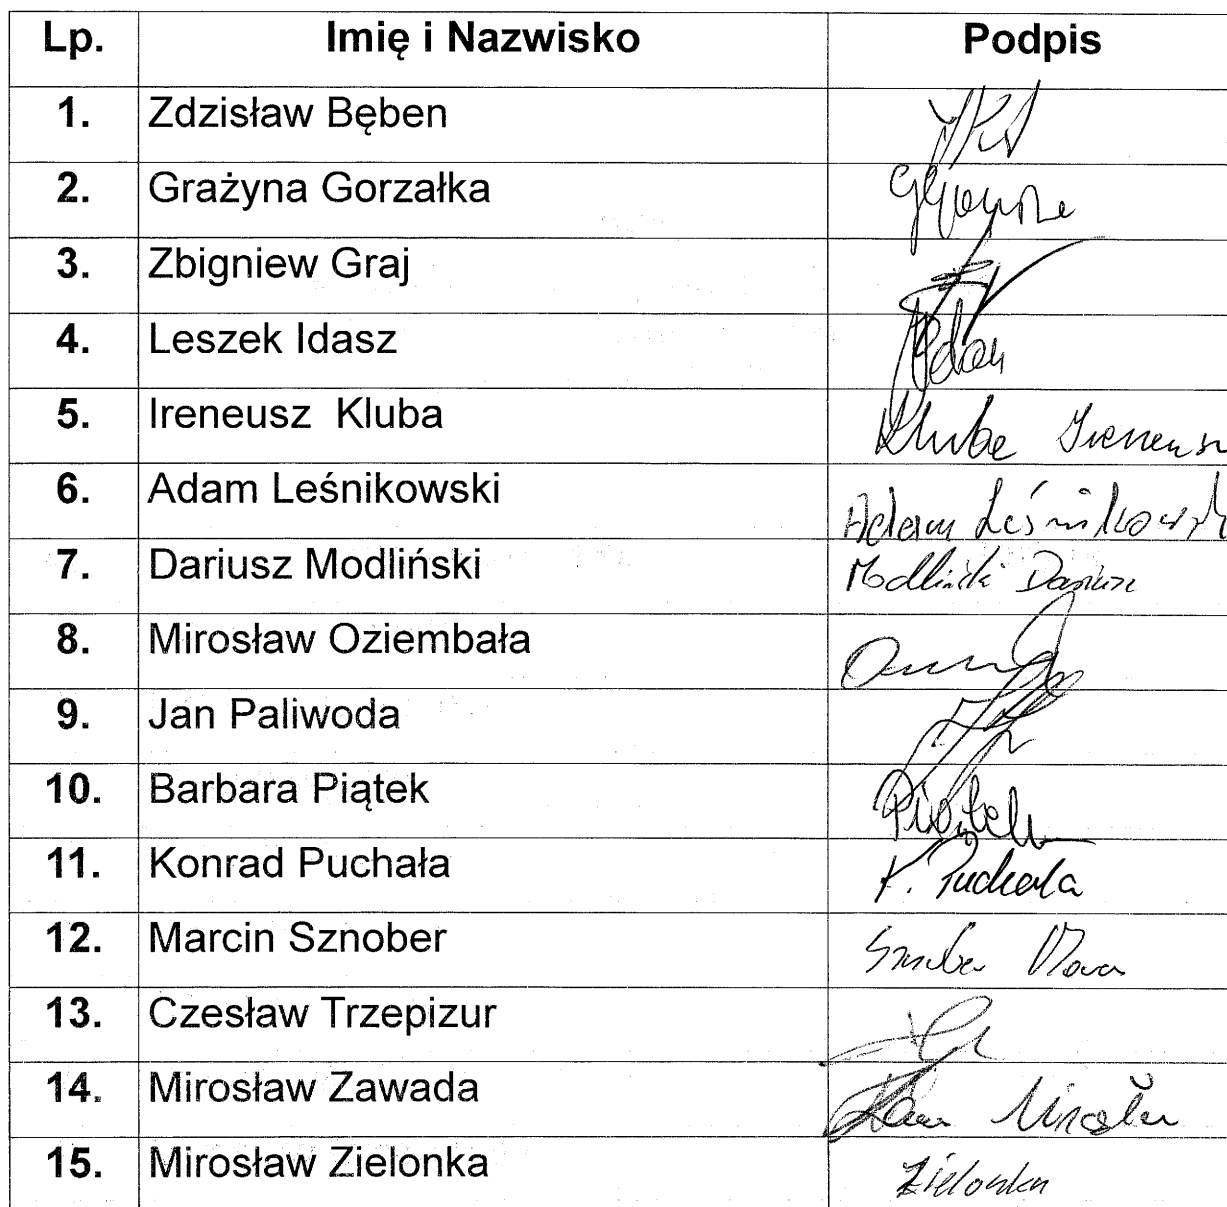 Lp. Imię i Nazwisko Podpis
1. Zdzisław Bęben
2. Grażyna Gorzałka
3. Zbigniew Graj
4. Leszek Idasz
5. Ireneusz Kluba Kluba Ireneusz
6. Adam Leśnikowski Adam Leśnikowski
7. Dariusz Modliński Modliński Dariusz
8. Mirosław Oziembała
9. Jan Paliwoda
10. Barbara Piątek Piątek
11. Konrad Puchała K. Puchała
12. Marcin Sznober
13. Czesław Trzepizur
14. Mirosław Zawada
15. Mirosław Zielonka Zielonka